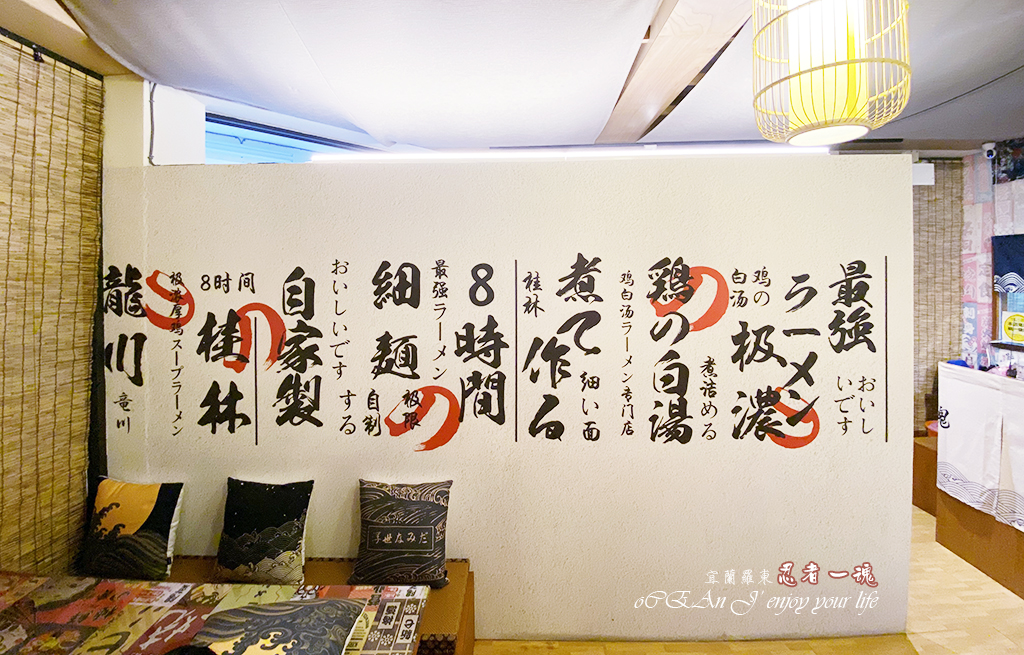 最強
おいし
いです
ラーメン
鸡の
白汤
极濃
の
煮詰める
鶏の白湯
の
鸡白汤ラーメン专门店
煮て作る
細い面
桂林
8時間
最强ラーメン
极限
の
自制
細麺
おいしいです
する
自家製
8时间
の
桂林
极濃厚鸡スープラーメン
の
龍川
竜川
宜蘭羅東忍者一魂
oCEAn J' enjoy your life